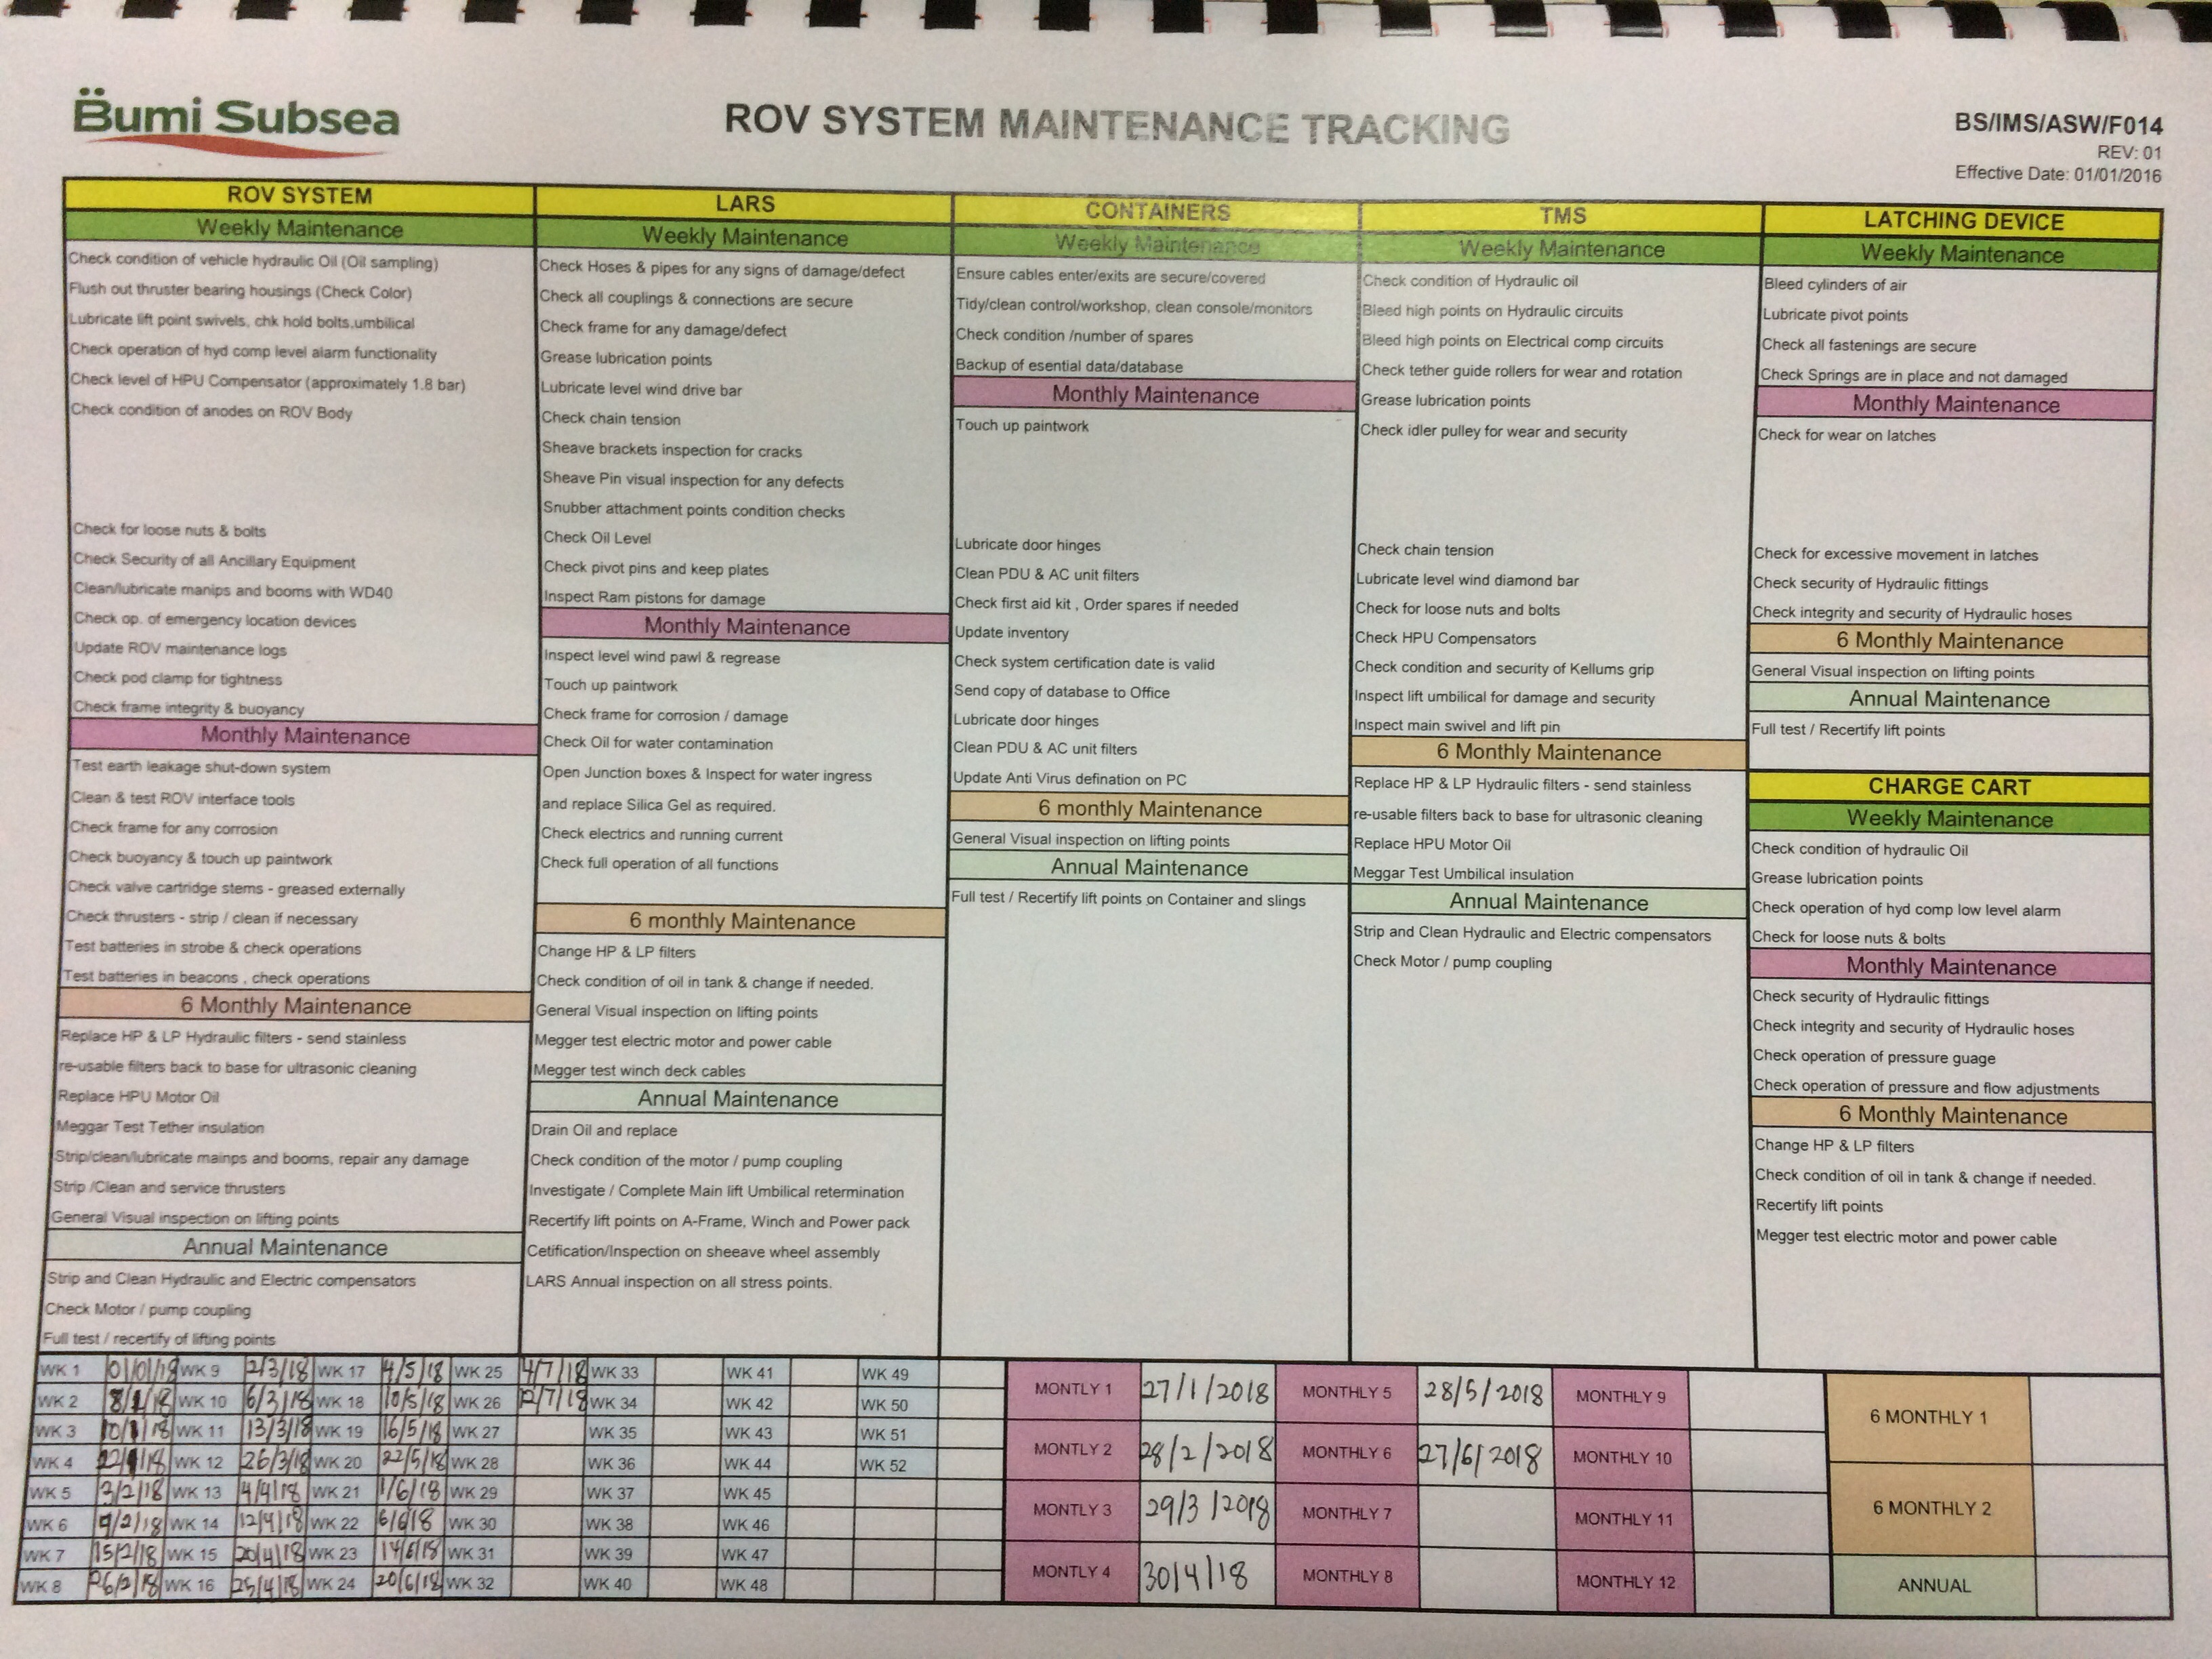 Bumi Subsea
ROV SYSTEM MAINTENANCE TRACKING
BS/IMS/ASW/F014
REV: 01
Effective Date: 01/01/2016
ROV SYSTEM
Weekly Maintenance
Check condition of vehicle hydraulic Oil (Oil sampling)
Flush out thruster bearing housings (Check Color)
Lubricate lift point swivels, chk hold bolts,umbilical
Check operation of hyd comp level alarm functionality
Check level of HPU Compensator (approximately 1.8 bar)
Check condition of anodes on ROV Body
Check for loose nuts & bolts
Check Security of all Ancillary Equipment
Clean/lubricate manips and booms with WD40
Check op. of emergency location devices
Update ROV maintenance logs
Check pod clamp for tightness
Check frame integrity & buoyancy
Monthly Maintenance
Test earth leakage shut-down system
Clean & test ROV interface tools
Check frame for any corrosion
Check buoyancy & touch up paintwork
Check valve cartridge stems - greased externally
Check thrusters - strip / clean if necessary
Test batteries in strobe & check operations
Test batteries in beacons , check operations
6 Monthly Maintenance
Replace HP & LP Hydraulic filters - send stainless
re-usable filters back to base for ultrasonic cleaning
Replace HPU Motor Oil
Meggar Test Tether insulation
Strip/clean/lubricate mainps and booms, repair any damage
Strip /Clean and service thrusters
General Visual inspection on lifting points
Annual Maintenance
Strip and Clean Hydraulic and Electric compensators
Check Motor / pump coupling
Full test / recertify of lifting points
LARS
Weekly Maintenance
Check Hoses & pipes for any signs of damage/defect
Check all couplings & connections are secure
Check frame for any damage/defect
Grease lubrication points
Lubricate level wind drive bar
Check chain tension
Sheave brackets inspection for cracks
Sheave Pin visual inspection for any defects
Snubber attachment points condition checks
Check Oil Level
Check pivot pins and keep plates
Inspect Ram pistons for damage
Monthly Maintenance
Inspect level wind pawl & regrease
Touch up paintwork
Check frame for corrosion / damage
Check Oil for water contamination
Open Junction boxes & Inspect for water ingress
and replace Silica Gel as required.
Check electrics and running current
Check full operation of all functions
6 monthly Maintenance
Change HP & LP filters
Check condition of oil in tank & change if needed.
General Visual inspection on lifting points
Megger test electric motor and power cable
Megger test winch deck cables
Annual Maintenance
Drain Oil and replace
Check condition of the motor / pump coupling
Investigate / Complete Main lift Umbilical retermination
Recertify lift points on A-Frame, Winch and Power pack
Cetification/Inspection on sheeave wheel assembly
LARS Annual inspection on all stress points.
CONTAINERS
Weekly Maintenance
Ensure cables enter/exits are secure/covered
Tidy/clean control/workshop, clean console/monitors
Check condition /number of spares
Backup of esential data/database
Monthly Maintenance
Touch up paintwork
Lubricate door hinges
Clean PDU & AC unit filters
Check first aid kit , Order spares if needed
Update inventory
Check system certification date is valid
Send copy of database to Office
Lubricate door hinges
Clean PDU & AC unit filters
Update Anti Virus defination on PC
6 monthly Maintenance
General Visual inspection on lifting points
Annual Maintenance
Full test / Recertify lift points on Container and slings
TMS
Weekly Maintenance
Check condition of Hydraulic oil
Bleed high points on Hydraulic circuits
Bleed high points on Electrical comp circuits
Check tether guide rollers for wear and rotation
Grease lubrication points
Check idler pulley for wear and security
Check chain tension
Lubricate level wind diamond bar
Check for loose nuts and bolts
Check HPU Compensators
Check condition and security of Kellums grip
Inspect lift umbilical for damage and security
Inspect main swivel and lift pin
6 Monthly Maintenance
Replace HP & LP Hydraulic filters - send stainless
re-usable filters back to base for ultrasonic cleaning
Replace HPU Motor Oil
Meggar Test Umbilical insulation
Annual Maintenance
Strip and Clean Hydraulic and Electric compensators
Check Motor / pump coupling
LATCHING DEVICE
Weekly Maintenance
Bleed cylinders of air
Lubricate pivot points
Check all fastenings are secure
Check Springs are in place and not damaged
Monthly Maintenance
Check for wear on latches
Check for excessive movement in latches
Check security of Hydraulic fittings
Check integrity and security of Hydraulic hoses
6 Monthly Maintenance
General Visual inspection on lifting points
Annual Maintenance
Full test / Recertify lift points
CHARGE CART
Weekly Maintenance
Check condition of hydraulic Oil
Grease lubrication points
Check operation of hyd comp low level alarm
Check for loose nuts & bolts
Monthly Maintenance
Check security of Hydraulic fittings
Check integrity and security of Hydraulic hoses
Check operation of pressure guage
Check operation of pressure and flow adjustments
6 Monthly Maintenance
Change HP & LP filters
Check condition of oil in tank & change if needed.
Recertify lift points
Megger test electric motor and power cable
WK 1 WK 9 2/3/18 WK 17 4/5/18 WK 25 4/7/18 WK 33 WK 41 WK 49
WK 2 WK 10 6/3/18 WK 18 10/5/18 WK 26 12/7/18 WK 34 WK 42 WK 50
WK 3 WK 11 13/3/18 WK 19 16/5/18 WK 27 WK 35 WK 43 WK 51
WK 4 WK 12 26/3/18 WK 20 22/5/18 WK 28 WK 36 WK 44 WK 52
WK 5 2/2/18 WK 13 4/4/18 WK 21 1/6/18 WK 29 WK 37 WK 45
WK 6 WK 14 12/4/18 WK 22 6/6/18 WK 30 WK 38 WK 46
WK 7 15/2/18 WK 15 20/4/18 WK 23 14/6/18 WK 31 WK 39 WK 47
WK 8 WK 16 25/4/18 WK 24 20/6/18 WK 32 WK 40 WK 48
MONTLY 1 27/1/2018 MONTHLY 5 28/5/2018 MONTHLY 9
MONTLY 2 28/2/2018 MONTHLY 6 27/6/2018 MONTHLY 10
MONTLY 3 29/3/2018 MONTHLY 7 MONTHLY 11
MONTLY 4 30/4/18 MONTHLY 8 MONTHLY 12
6 MONTHLY 1
6 MONTHLY 2
ANNUAL